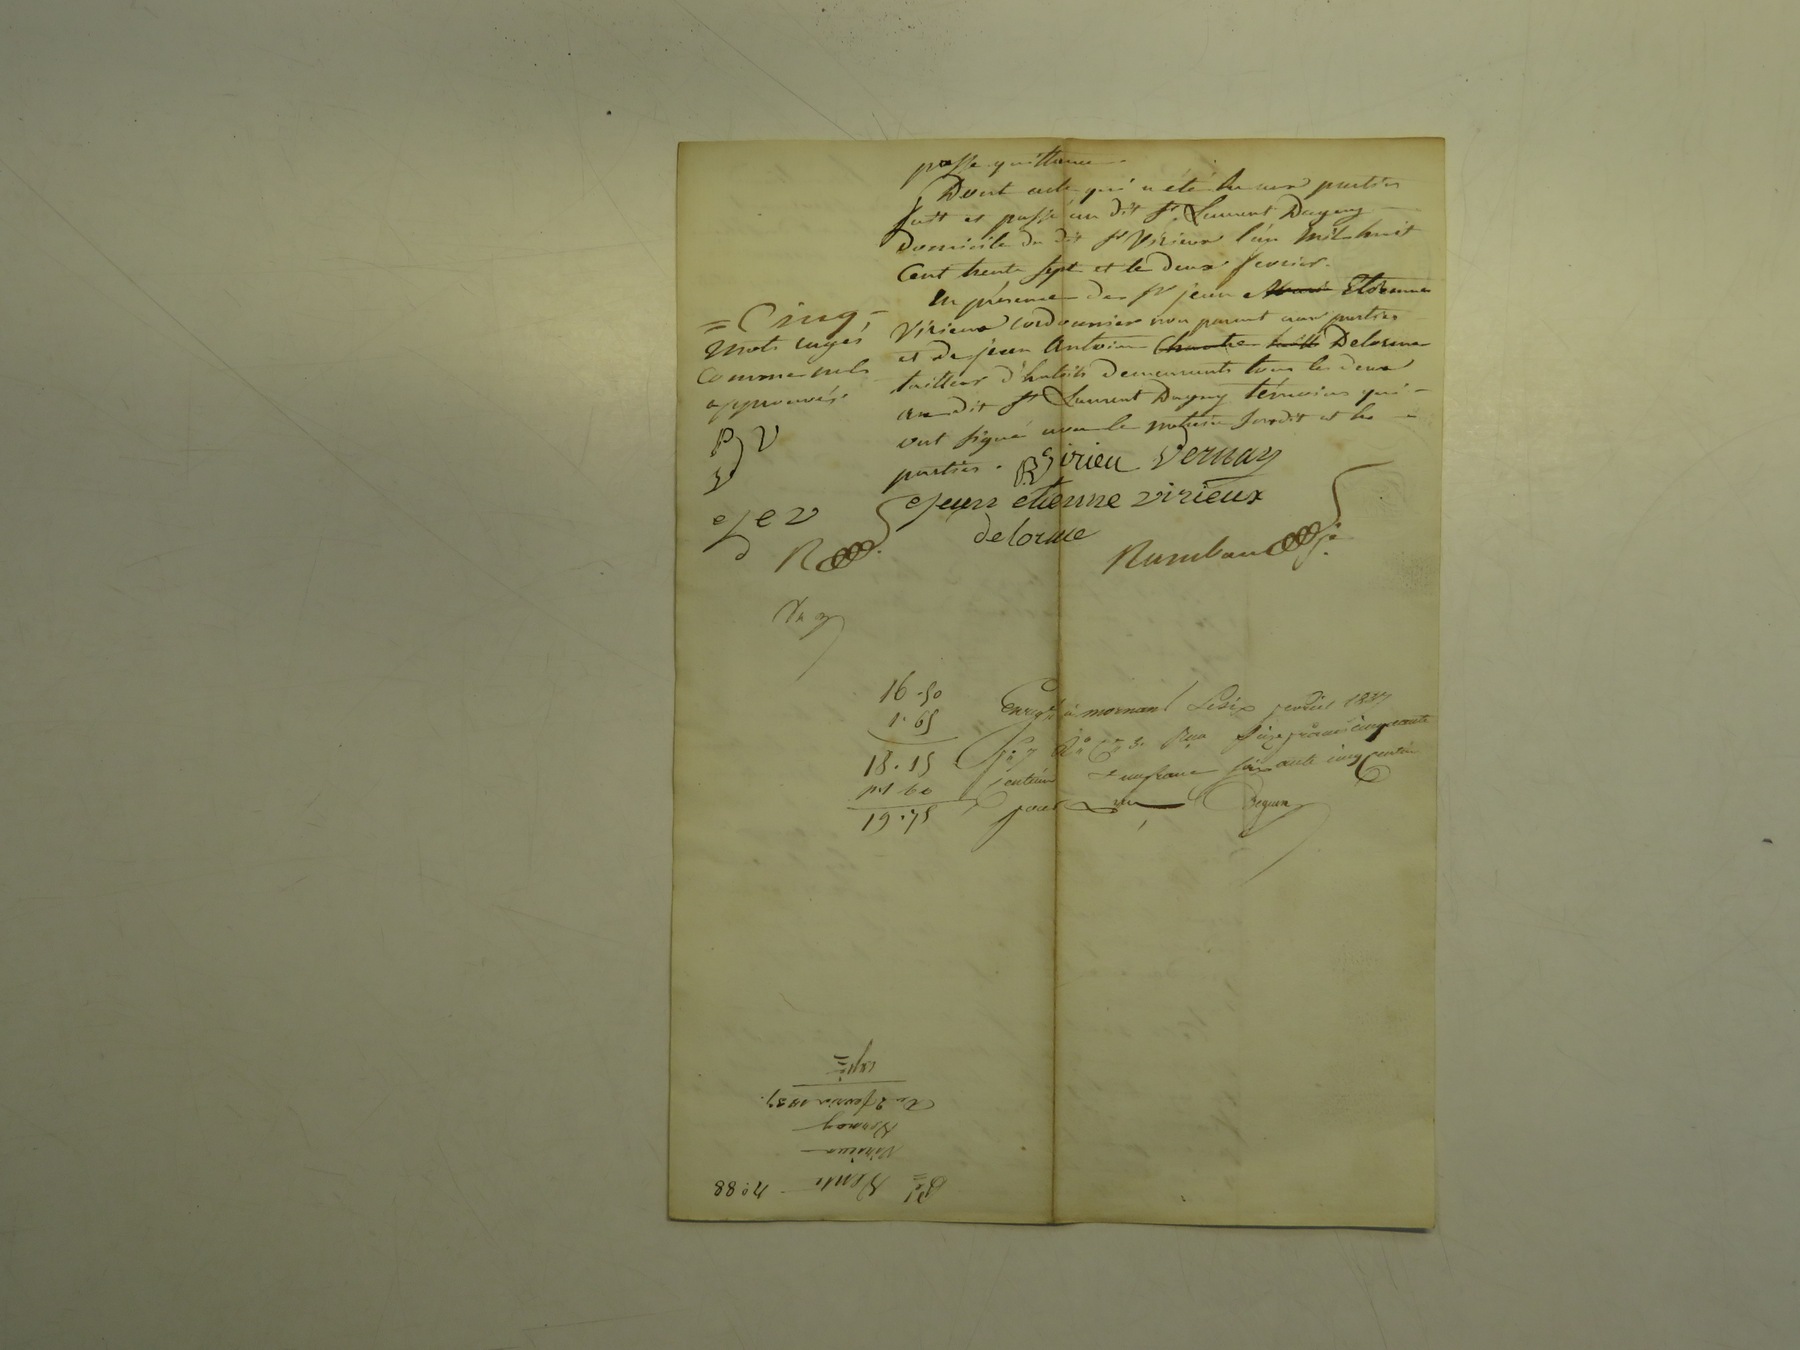 passe quittance.
Dont acte qui a été lu aux parties
fait et passé au dit St. Laurent Dagny
Domicile du dit sr Virieux l'an mil huit
Cent trente sept et le deux fevrier.
En présence de sr jean Marie Etienne
Virieux cordonnier non parent aux parties
et de jean Antoine Delorme
tailleur d'habits demeurants tous les deux
au dit St Laurent Dagny témoins qui
ont signé avec le notaire susdit et les
parties.
= Cinq =
mots rayés
comme nuls
approuvés.
P V
V
J e V
d R
Virieu Vernay
Jean etienne virieux
delorme
Rambau
16.50
1.65
18.15
60
19.75
Enregtré à mornant Le six fevrier 1837
fo 7 Ro Cse 3. Reçu Seize francs cinquante
centimes & un franc soixante cinq centimes
pour
No. 88
Vente
Virieux
Vernay
Du 2 fevrier 1837.